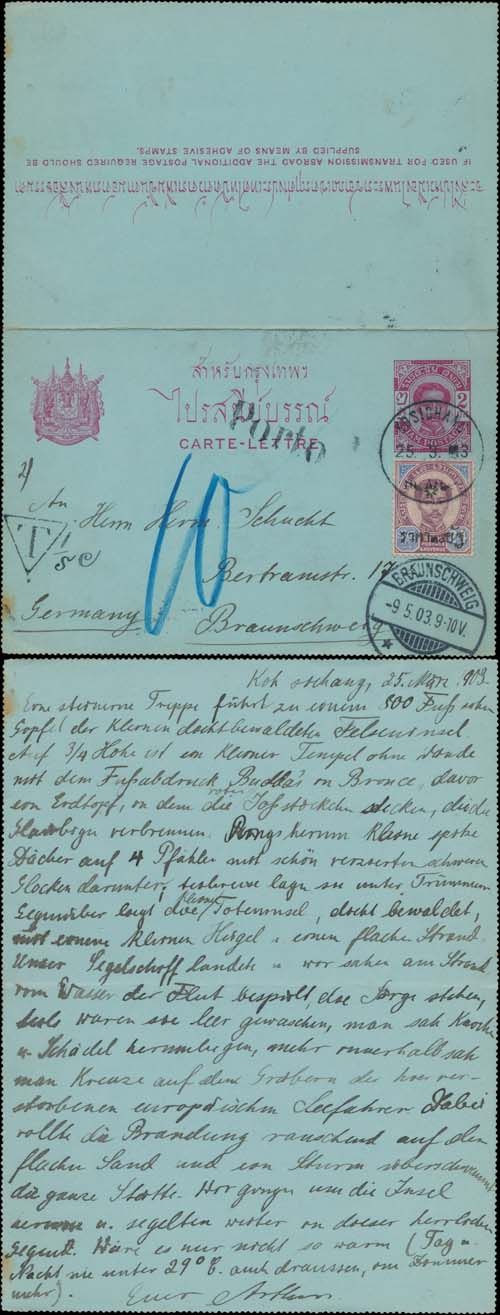 IF USED FOR TRANSMISSION ABROAD THE ADDITIONAL POSTAGE REQUIRED SHOULD BE
SUPPLIED BY MEANS OF ADHESIVE STAMPS.
สำหรับกรุงเทพฯ
ไปรสนีย์บรรณ์
CARTE-LETTRE
PORTO
2
25. 3. 03
2)
An
Herrn Herm. Schucht
T
10
Bertramstr. 17
Germany
Braunschweig
BRAUNSCHWEIG
-9.5.03.9-10V.
Koh sichang, 25. März 903.
Eine steinerne Treppe führt zu einem 800 Fuss hohen
Gipfel der kleinen dichtbewaldeten Felseninsel
Auf 3/4 Höhe ist ein kleiner Tempel ohne Wände
mit dem Fußabdruck Budda's in Bronce, davor
ein Erdtopf, in dem die roten stecken, die die
Glaubigen verbrennen. Rings herum kleine spitze
Dächer auf 4 Pfählen mit schön verzierten schweren
Glocken darunter, teilweise lagen sie unter Trümmern
Gegenüber liegt die kleine Toteninsel, dicht bewaldet,
mit einem kleinen Hügel u. einen flachen Strand.
Unser Segelschiff landete u. wir sahen am Strand
vom Wasser der Flut bespült, die Särge stehen,
teils waren sie leer gewaschen, man sah Knochen
u. Schädel herumliegen, mehr innerhalb sah
man Kreuze auf den Gräbern der hier ver-
storbenen europäischen Seefahrer. Dabei
rollte die Brandung rauschend auf den
flachen Sand und ein Sturm
die ganze Stätte. Wir gingen um die Insel
u. segelten weiter in dieser herrlichen
Gegend. Wäre es nur nicht so warm (Tag u.
Nacht nie unter 29° C. auch draussen, im Sommer
mehr). Euer Arthur.